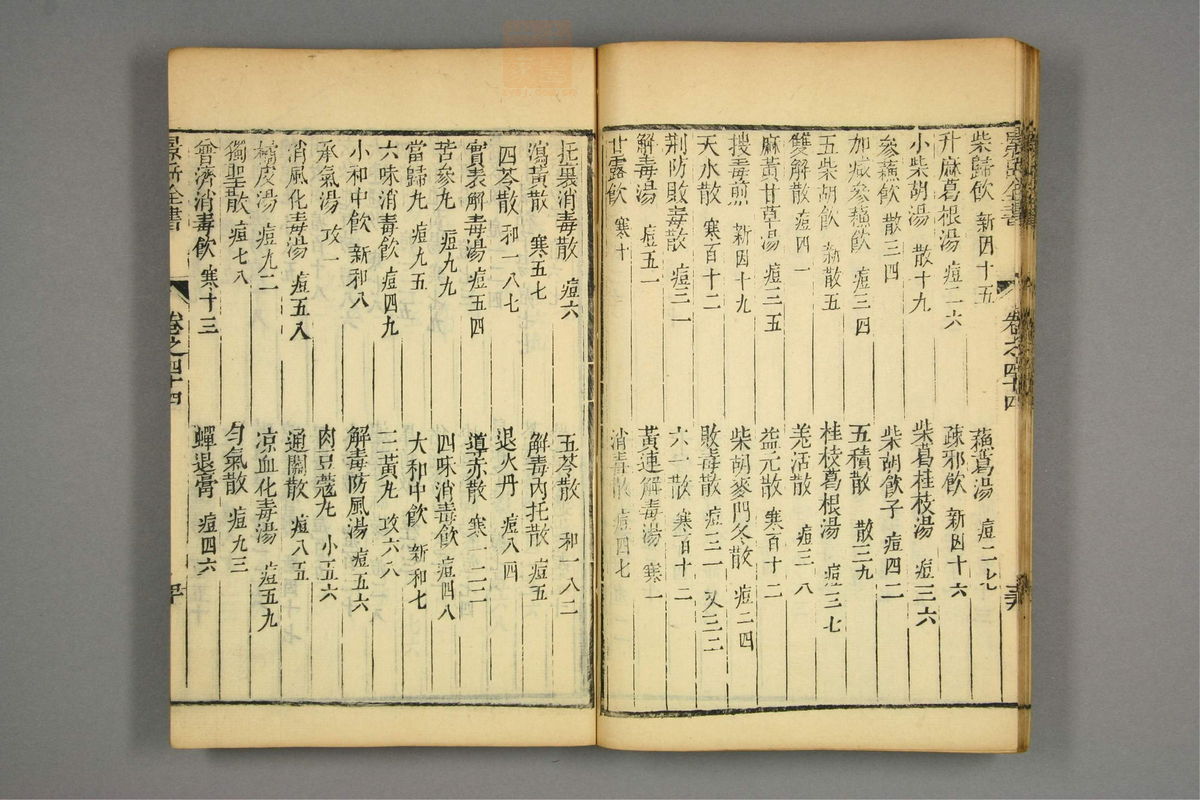 景岳全書 卷之四十四
柴歸飲 新因十五 蘓葛湯 痘二七
升麻葛根湯 痘二六 疎邪飲 新因十六
小柴胡湯 散十九 柴葛桂枝湯 痘三六
參蘓飲 散三四 柴胡飲子 痘四二
加減參蘓飲 痘三四 五積散 散三九
五柴胡飲 新散五 桂枝葛根湯 痘三七
雙解散 痘四一 羌活散 痘三八
麻黃甘草湯 痘三五 益元散 寒百十二
搜毒煎 新因十九 柴胡麥門冬散 痘二四
天水散 寒百十二 敗毒散 痘三一 又三二
荆防敗毒散 痘三一 六一散 寒百十二
解毒湯 痘五一 黃連解毒湯 寒一
甘露飲 寒十 消毒散 痘四七
托裏消毒散 痘六 五苓散 和一八二
瀉黃散 寒五七 解毒內托散 痘五
四苓散 和一八七 退火丹 痘八四
實表解毒湯 痘五四 導赤散 寒一二二
苦參丸 痘九九 四味消毒飲 痘四八
當歸丸 痘九五 大和中飲 新和七
六味消毒飲 痘四九 三黃丸 攻六八
小和中飲 新和八 解毒防風湯 痘五六
承氣湯 攻一 肉豆蔻丸 小五六
消風化毒湯 痘五八 通關散 痘八五
橘皮湯 痘九二 凉血化毒湯 痘五九
獨聖散 痘七八 勻氣散 痘九三
會濟消毒飲 寒十三 蟬退膏 痘四六
景岳全書 卷之四十四